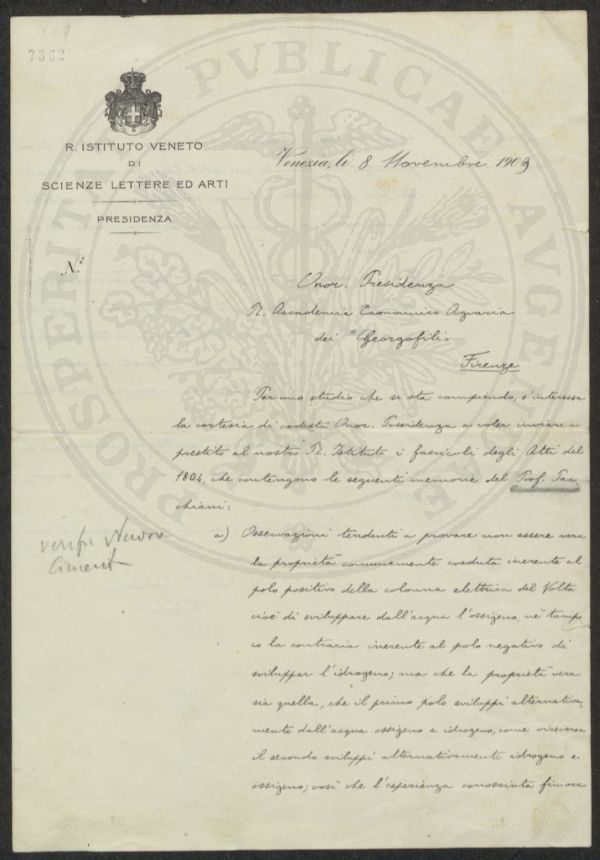 169
7362
R. ISTITUTO VENETO
DI
SCIENZE LETTERE ED ARTI
PRESIDENZA
N.º
Venezia, li 8 Novembre 1909
Onor. Presidenza
R. Accademia Economico Agraria
dei Georgofili
Firenze
Per uno studio che si sta compiendo, s'interessa
la cortesia di codesta Onor. Presidenza a voler inviare a
prestito al nostro R. Istituto i fascicoli degli Atti del
1804, che contengono le seguenti memorie del Prof. Pac
chiani;
verifi Nuovo
Ciment
a) Osservazioni tendenti a provare non essere vera
la proprietà comunemente creduta inerente al
polo positivo della colonna elettrica del Volta
cioè di sviluppare dall'acqua l'ossigeno, nè tampo
co la contraria inerente al polo negativo di
sviluppar l'idrogeno; ma che la proprietà vera
sia quella, che il primo polo sviluppi alternativa
mente dall'acqua ossigeno e idrogeno, come viceversa
il secondo sviluppi alternativamente idrogeno e
ossigeno; così che l'esperienza conosciuta finora
PROSPERITATI PVBLICAE AVGENDAE